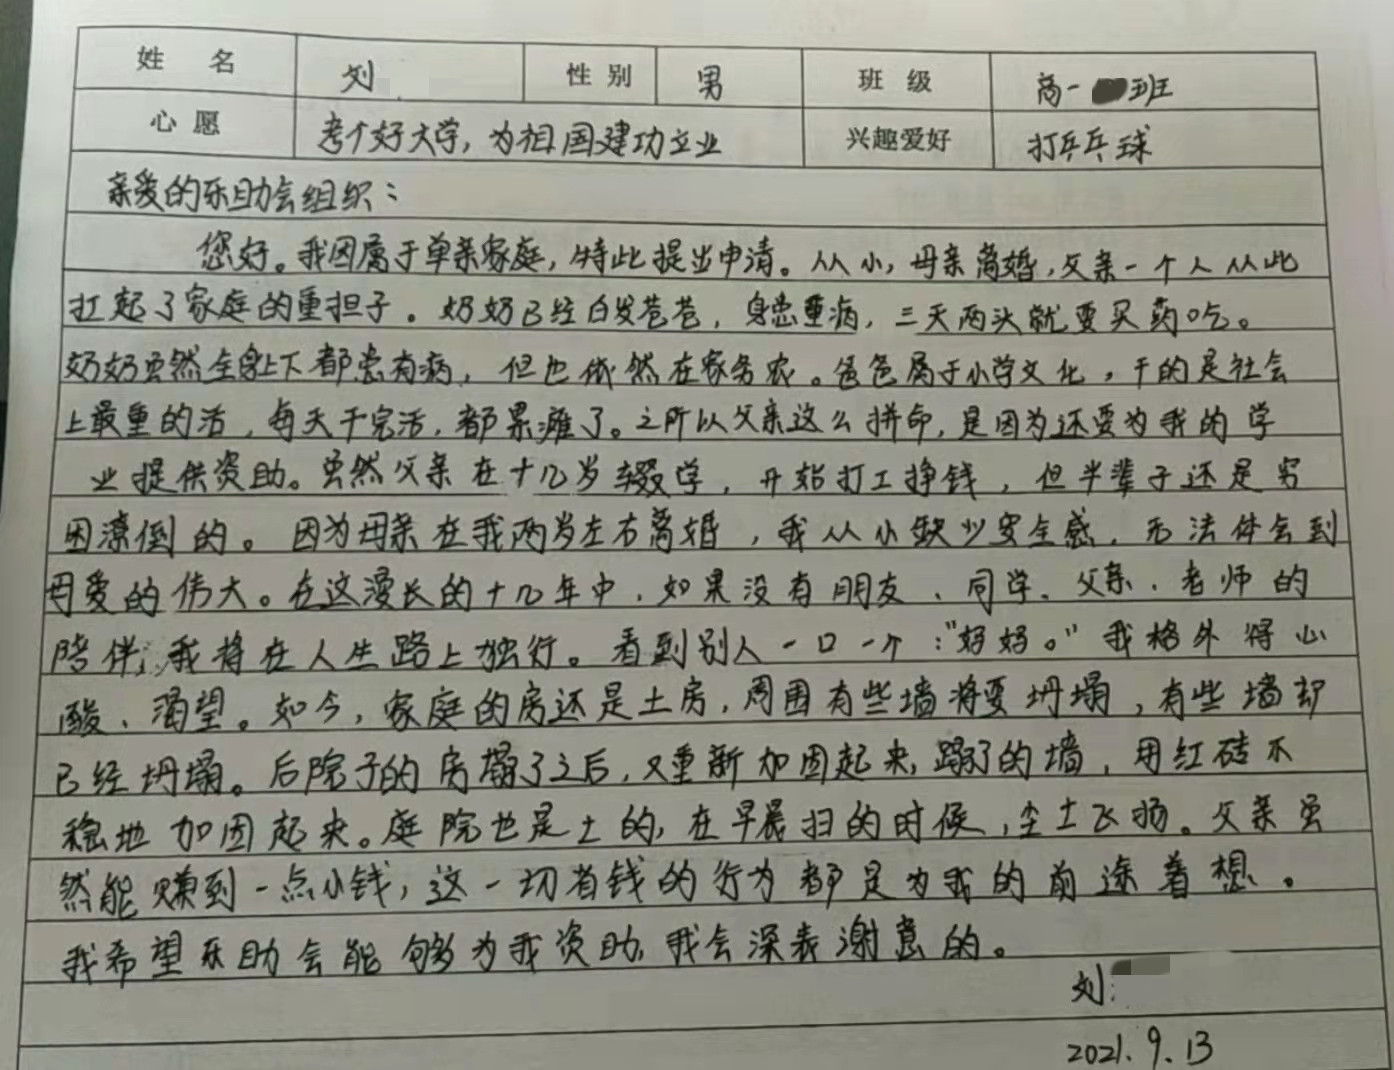 姓 名 刘 性 别 男 班 级 高一 班
心 愿 考个好大学，为祖国建功立业 兴趣爱好 打乒乓球
亲爱的乐助会组织：
您好。我因属于单亲家庭，特此提出申请。从小，母亲离婚，父亲一个人从此
扛起了家庭的重担子。奶奶已经白发苍苍，身患重病，三天两头就要买药吃。
奶奶虽然全身上下都患有病，但也依然在家务农。爸爸属于小学文化，干的是社会
上最重的活，每天干完活，都累瘫了。之所以父亲这么拼命，是因为还要为我的学
业提供资助。虽然父亲在十几岁辍学，开始打工挣钱，但半辈子还是穷
困潦倒的。因为母亲在我两岁左右离婚，我从小缺少安全感，无法体会到
母爱的伟大。在这漫长的十几年中，如果没有朋友、同学、父亲、老师的
陪伴，我将在人生路上独行。看到别人一口一个："妈妈。"我格外得心
酸、渴望。如今，家庭的房还是土房，周围有些墙将要坍塌，有些墙却
已经坍塌。后院子的房塌了之后，又重新加固起来，塌了的墙，用红砖不
稳地加固起来。庭院也是土的，在早晨扫的时候，尘土飞扬。父亲虽
然能赚到一点小钱，这一切省钱的行为都是为我的前途着想。
我希望乐助会能够为我资助，我会深表谢意的。
刘
2021.9.13